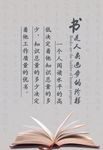 书是人类进步的阶梯
一个人阅读水平的高
低决定着他知识总量的多
少，知识总量的多少决定
着他工作质量的优劣。